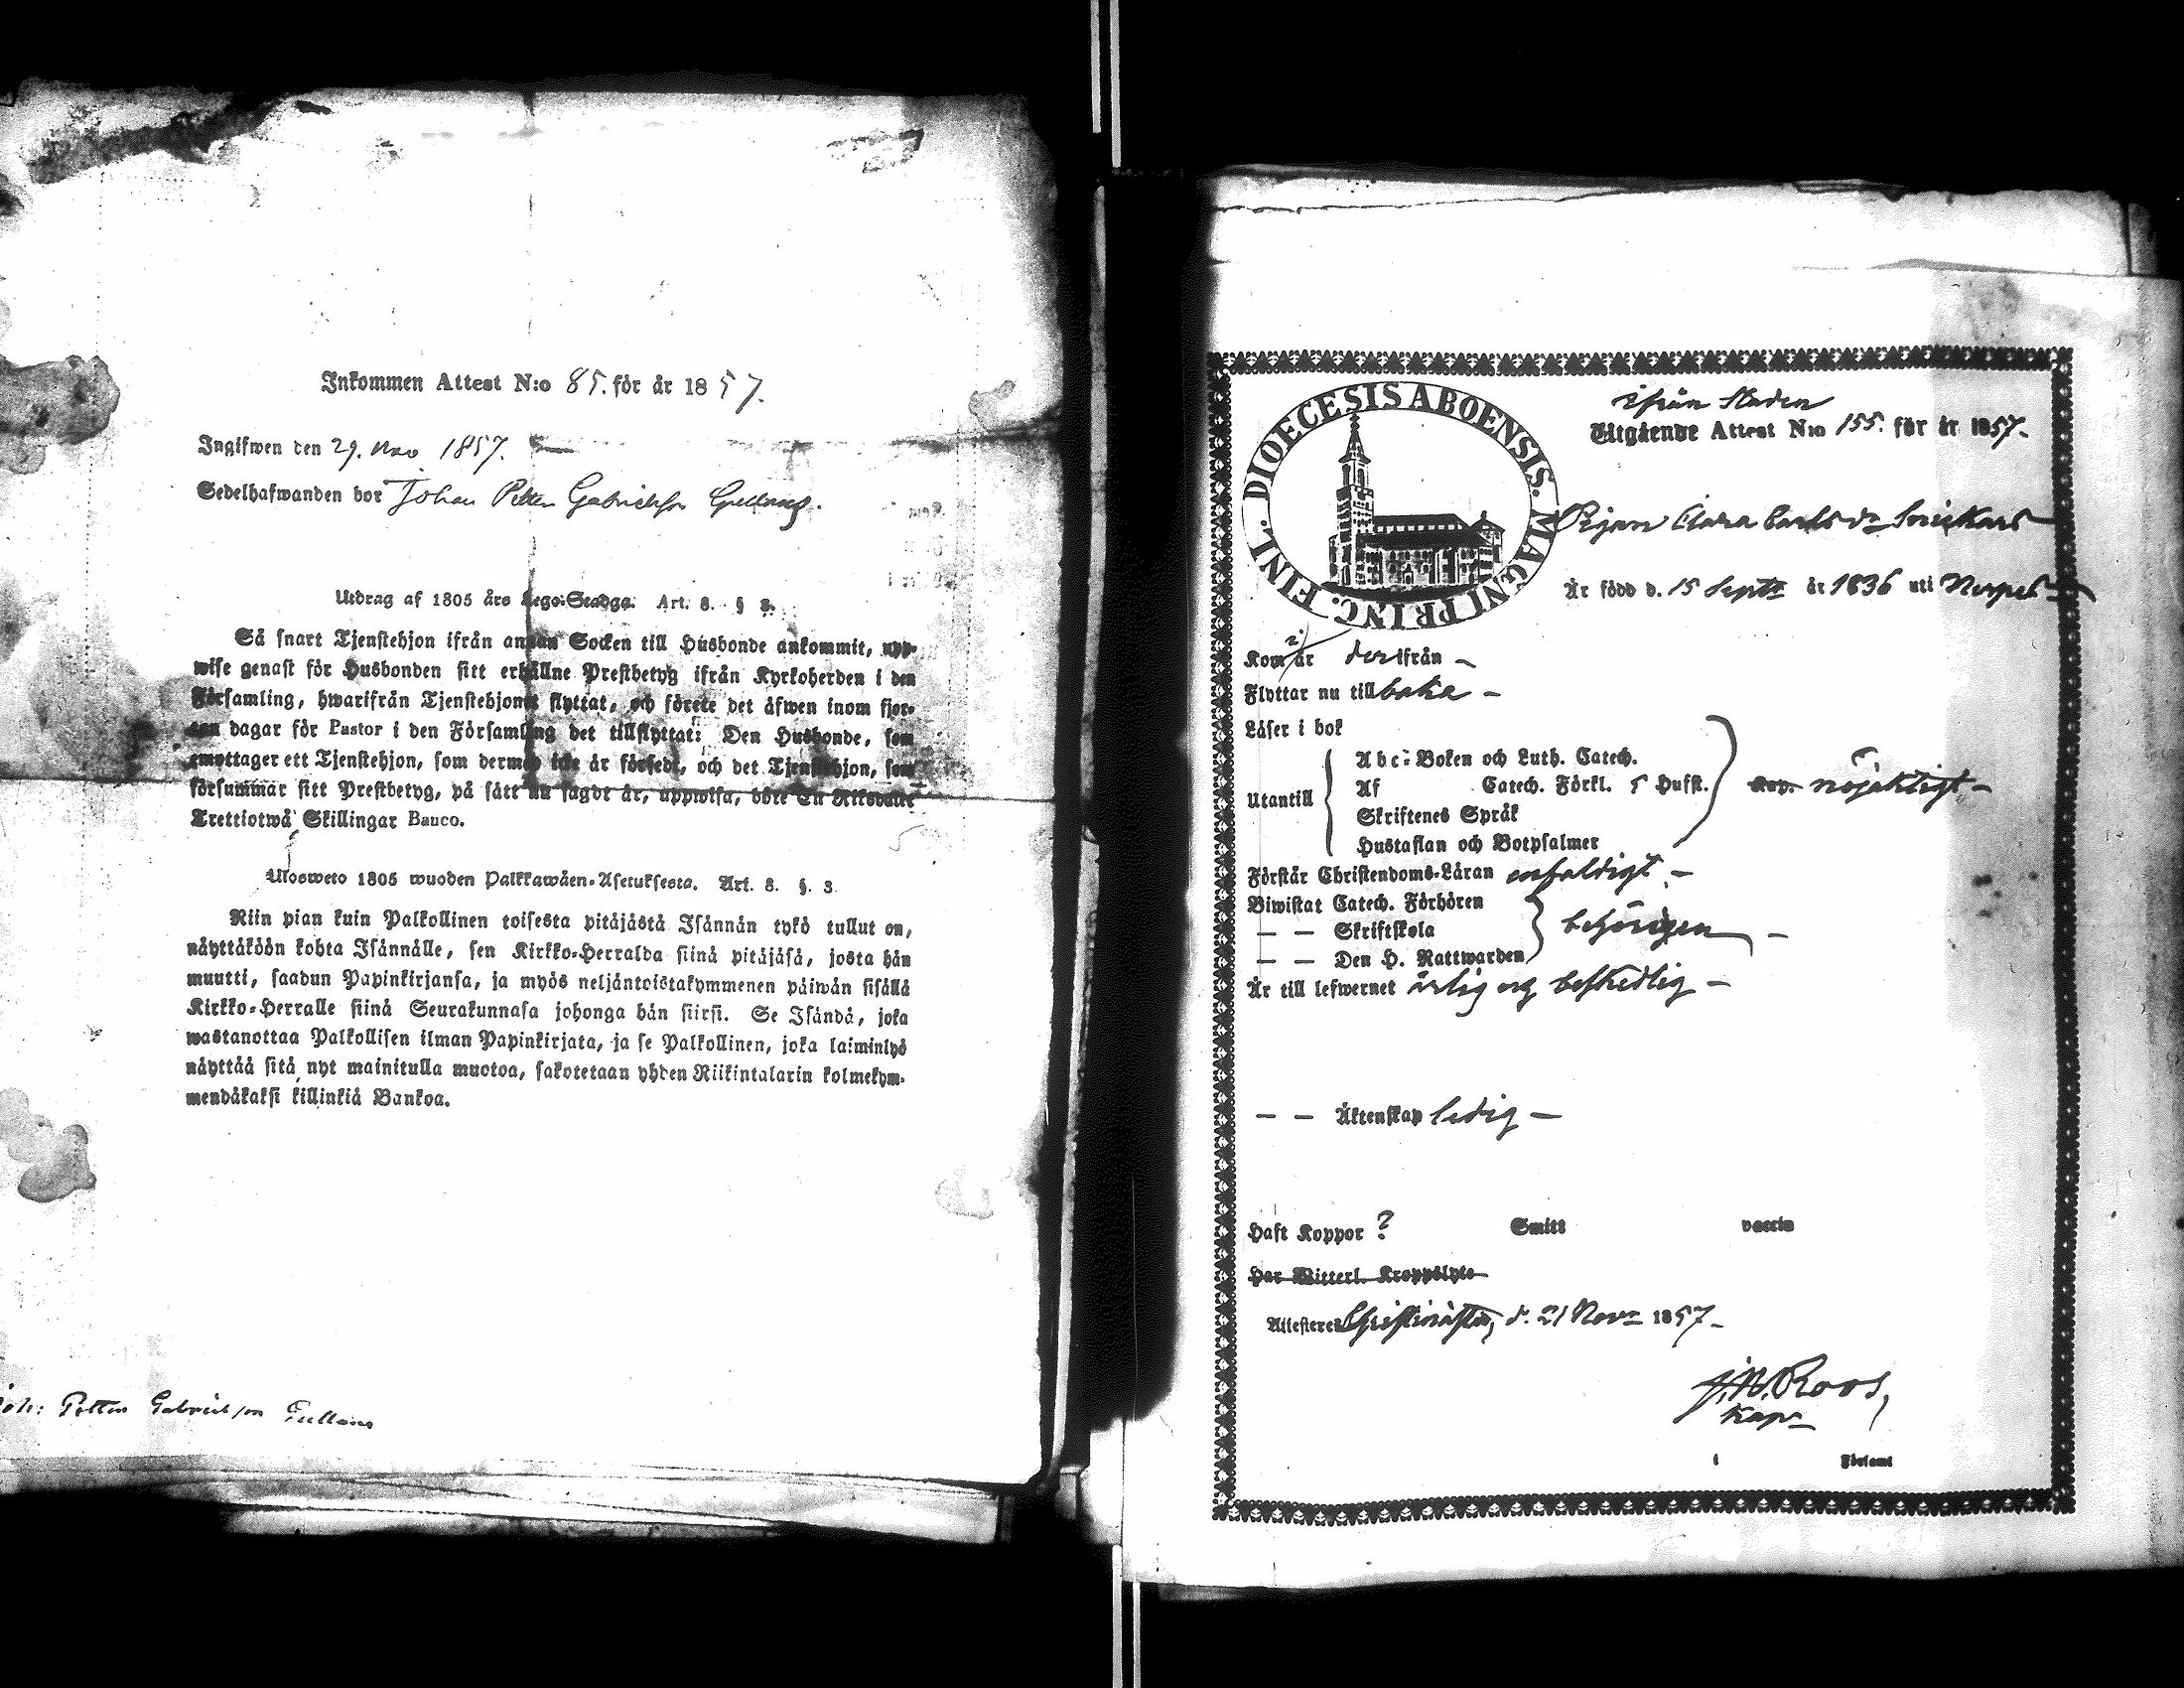 Inkommen Attest N:o 85. för år 1857.
Ingifwen den 29. Nov 1857.
Sedelhafwanden bor Johan Petter Gabrielsson
Utdrag af 1805 års Lego-Stadga. Art. 8. § 3.
Så snart Tjenstehjon ifrån annan Socken till Husbonde ankommit, upp-
wise genast för Husbonden sitt erhållne Prestbetyg ifrån Kyrkoherden i den
Församling, hwarifrån Tjenstehjonet flyttat, och förete det äfwen inom fjor-
ton dagar för Pastor i den Församling det tillflyttat: Den Husbonde, som
emottager ett Tjenstehjon, som dermed icke är försedt, och det Tjenstehjon, som
försummar sitt Prestbetyg, på sätt nu sagdt är, uppwisa, böte En Riksdaler
Trettiotwå Skillingar Banco.
Ulosweto 1805 wuoden Palkkawäen-Asetuksesta. Art. 8. §. 3.
Niin pian kuin Palkollinen toisesta pitäjästä Isännän tykö tullut on,
näyttäköön kohta Isännälle, sen Kirkko-Herralda siinä pitäjäsä, josta hän
muutti, saadun Papinkirjansa, ja myös neljäntoistakymmenen päiwän sisällä
Kirkko-Herralle siinä Seurakunnasa johonga hän siirsi. Se Isändä, joka
wastanottaa Palkollisen ilman Papinkirjata, ja se Palkollinen, joka laiminlyö
näyttää sitä nyt mainitulla muotoa, sakotetaan yhden Riikintalarin kolmekym-
mendäkaksi killinkiä Bankoa.
Joh: Petter Gabrielsson
DIOECESIS ABOENSIS. MAGNI PRINC. FINL.
ifrån Staden
Utgående Attest N:o 155. för år 1857.
Pigan Clara Carls dr Snickars
Är född d. 15 Septr år 1836 uti Nerpes
Kom i år derifrån
Flyttar nu tillbaka
Läser i bok
Utantill
Abc-Boken och Luth. Catech.
Af Catech. Förkl. 5 Hufst.
nöjaktigt
Skriftenes Språk
Hustaflan och Botpsalmer
Förstår Christendoms-Läran enfaldigt
Biwistat Catech. Förhören
— — Skriftskola
behörigen
— — Den H. Nattwarden
Är till lefwernet ärlig og beskedlig
— — Äktenskap ledig
Haft Koppor ? Smitt vaccin
Har Witterl. Kroppslyte
Attesteres Christinestad, d. 21 Novr 1857
J.W. Roos,
Kapn
i Församl